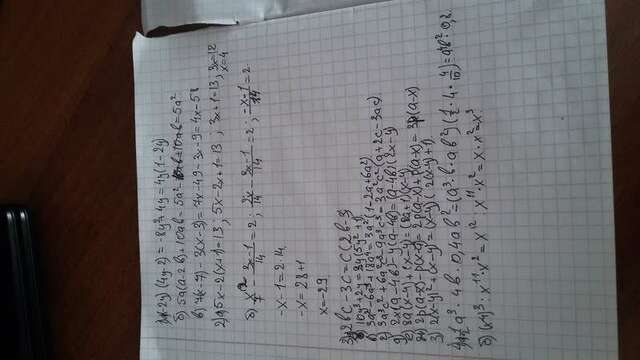 (-2y)(4y-2) = -8y²+4y = 4y(1-2y)
б) 5a(a-2b)+10ab = 5a²- +10ab = 5a²
в) 7(x-7) - 3(x-3) = 7x-49-3x-9 = 4x-58
2) 5x-2(x+1)=13; 5x-2x+1=13; 3x+1=13; 3x=12
x=4
б) - 3x-1/14 = 2; 2x/14 - 3x-1/14 = 2; -x-1/14 = 2
-x-1=2·14
-x = 28+1
x=-29
2bc-3c = c(2b-3)
+2y = (5y²+1)
3a²-6a³+18a⁴ = 3a²(1-2a+6a²)
3a³c²+6a²c³-9a³c³ = 3a²c²(a+2c-3ac)
2x(a-4b)-y(a-4b) = (a-4b)(2x-y)
8a(x-y)+(x-y) = (8a+1)(x-y)
2p(a-x)-p(x-a) = 2p(a-x)+p(a-x) = 3p(a-x)
2(x-y)²+(x-y) = (x-y)(2(x-y)+1)
1/2 a³·4b·0,4ab² = (a³·b·ab²)(1/2·4·4/10) =
б) (x⁴)³ : x¹¹·x² = x¹² : x¹¹·x² = x·x² = x³